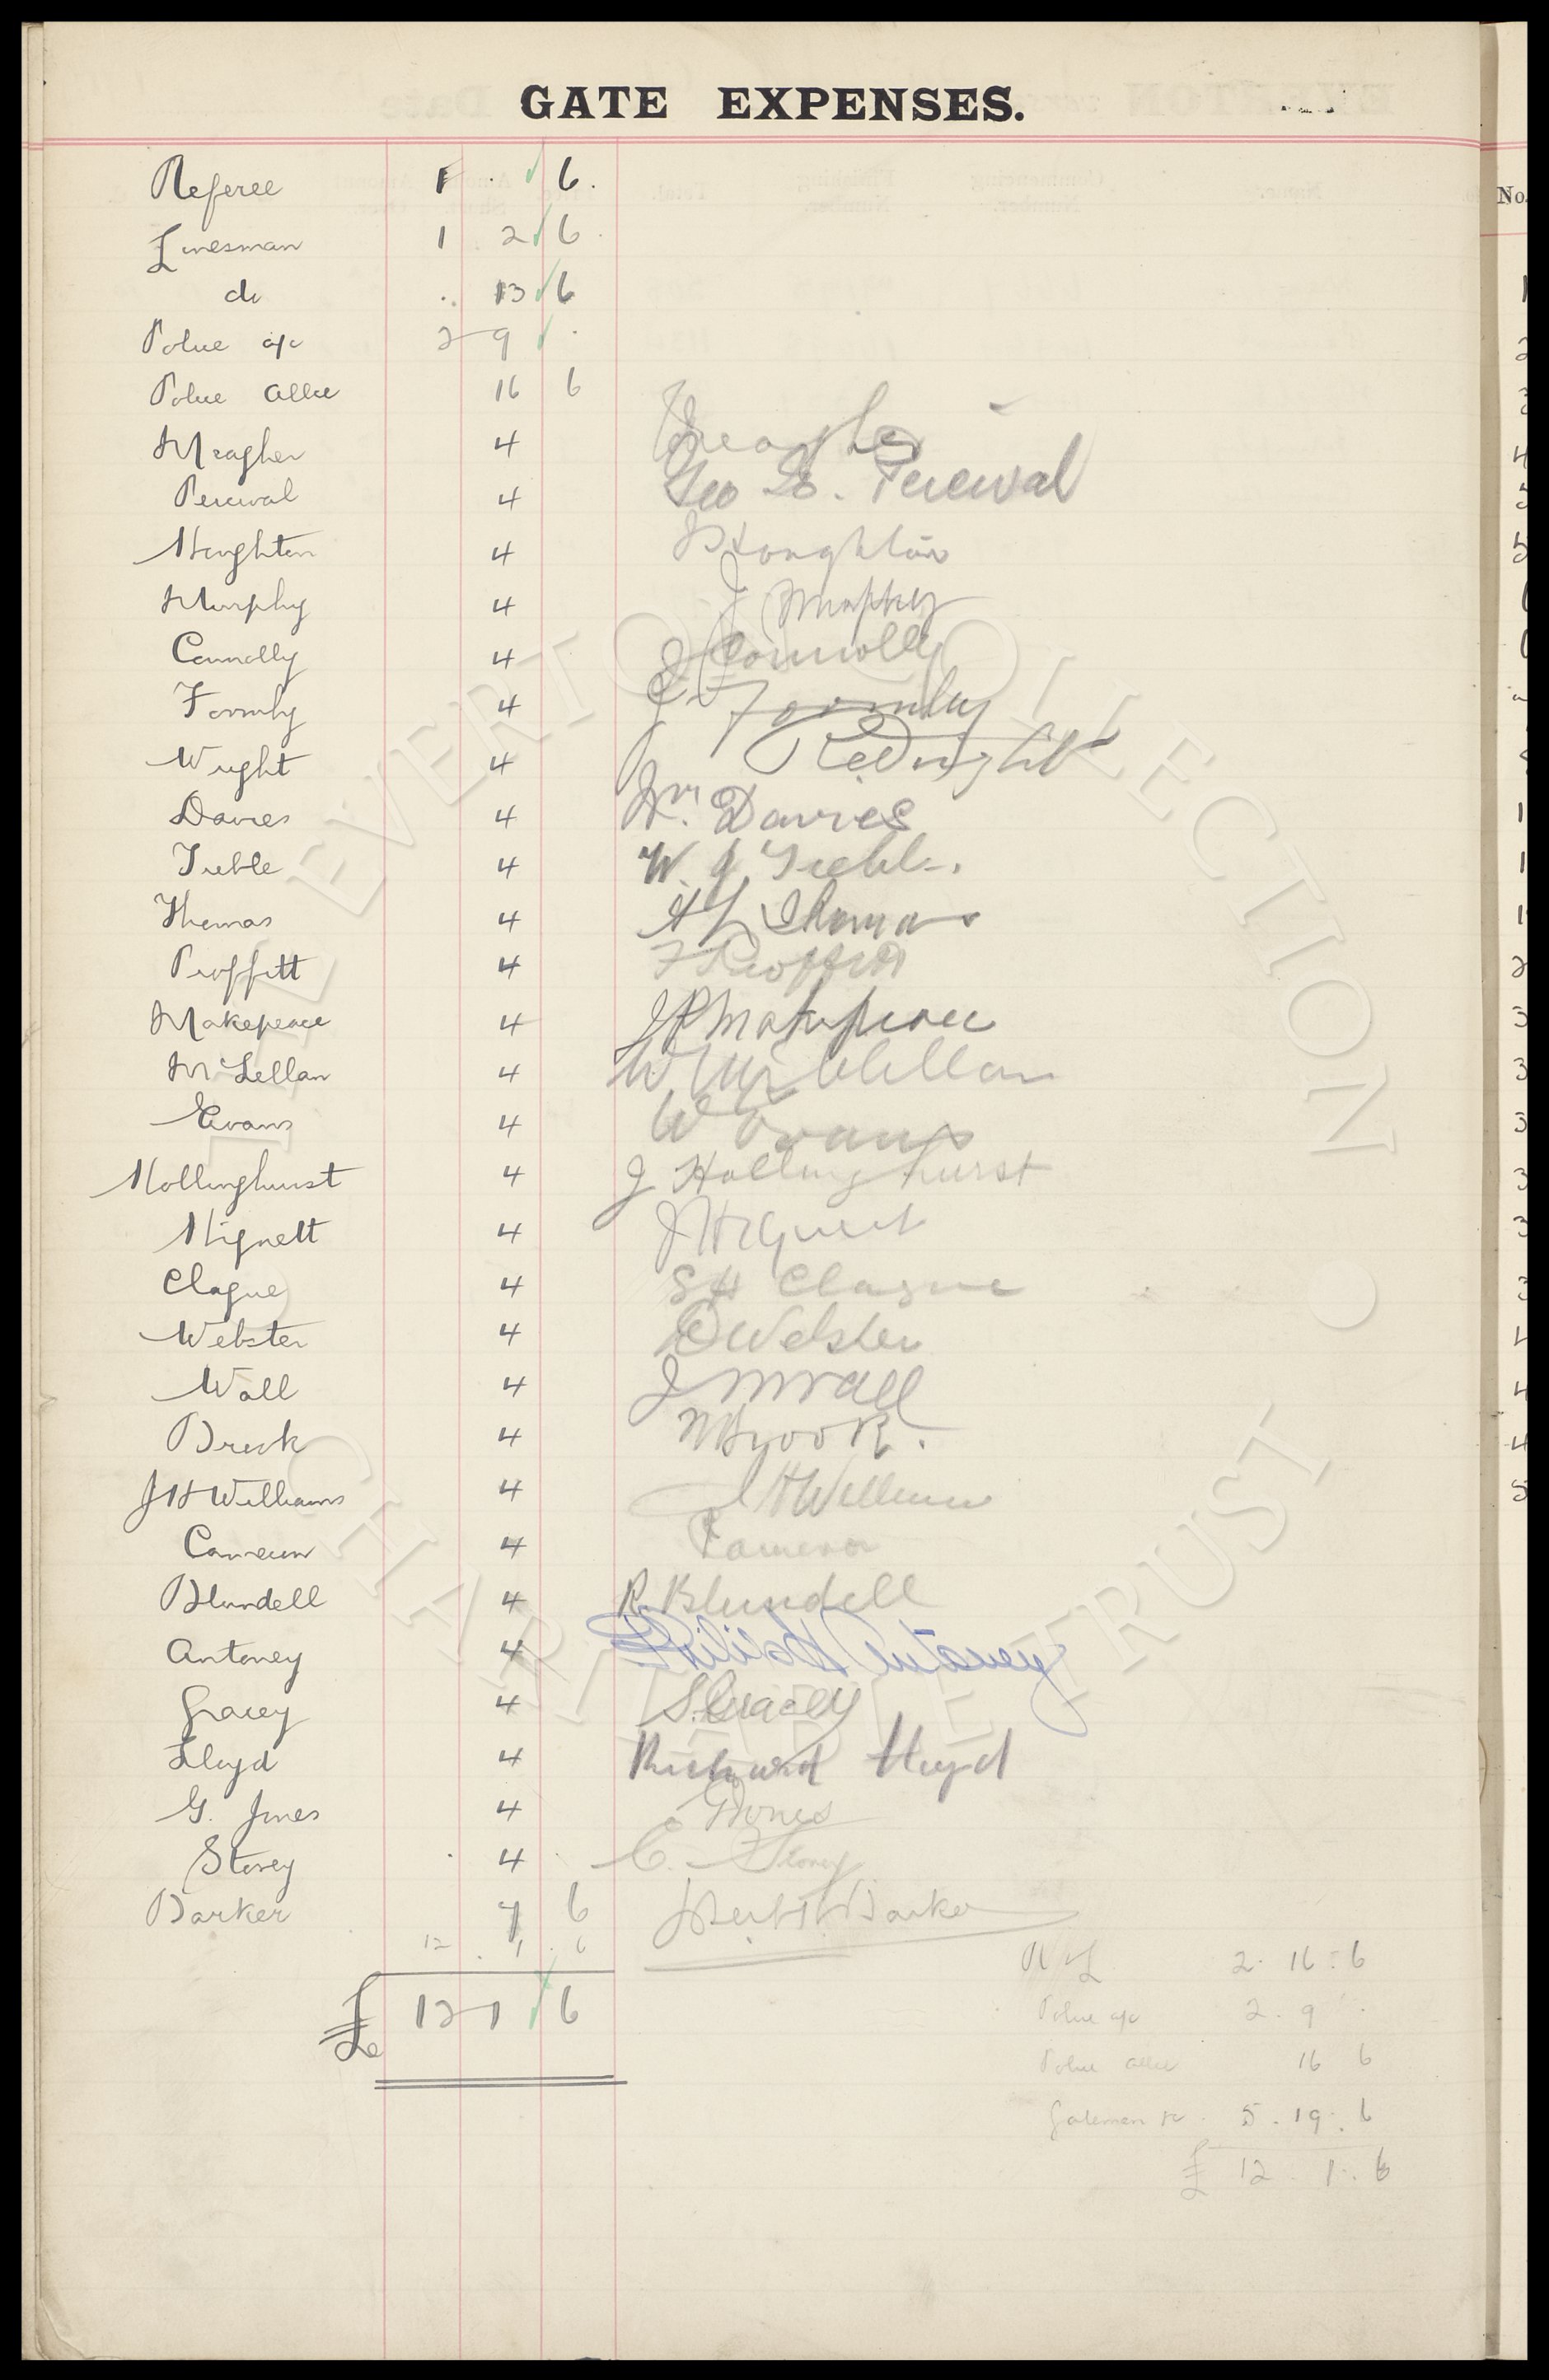 GATE EXPENSES.
Referee 1 . 6.
Linesman 1 2 6
do .. 13 6
Police a/c 2 9 .
Police allce 16 6
Meagher 4 Meagher
Percival 4 Geo S. Percival
Houghton 4 Houghton
Murphy 4 J Murphy
Connolly 4 J Connolly
Formby 4 J Formby
Wright 4 Wright
Davies 4 Wm. Davies
Treble 4 W. J Treble.
Thomas 4 A L Thomas
Proffitt 4 F Proffitt
Makepeace 4 J P Makepeace
McLellan 4 W McLellan
Evans 4 W Evans
Hollinghurst 4 J Hollinghurst
Hignett 4 J Hignett
Clague 4 S H Clague
Webster 4 Webster
Wall 4 J M Wall
Brook 4 Brook.
J H Williams 4 J H Williams
Cameron 4 Cameron
Blundell 4 R. Blundell
Antoney 4 Philip H Antoney
Gracey 4 S. Gracey
Lloyd 4 Richard Lloyd
G. Jones 4 G Jones
Storey . 4 . C. Storey
Barker 7 6 Herbt Barker
12 . 1 . 6
£ 12 1 6
R & L 2. 16 : 6
Police a/c 2 . 9 .
Police allce 16 6
Gatemen &c 5 . 19 . 6
£ 12 . 1 . 6
No.
EVERTON COLLECTION
CHARITABLE TRUST